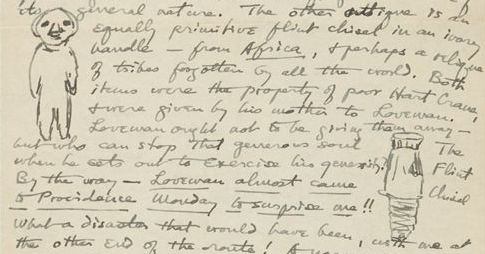 its general nature. The other antique is an
equally primitive flint chisel in an ivory
handle — from Africa, & perhaps a relique
of tribes forgotten by all the world. Both
items were the property of poor Hart Crane,
& were given by his mother to Loveman.
Loveman ought not to be giving them away —
but who can stop that generous soul
when he sets out to exercise his generosity?
The
Flint
Chisel
By the way — Loveman almost came
to Providence Monday to surprise me!!
What a disaster that would have been, with me at
the other end of the route!